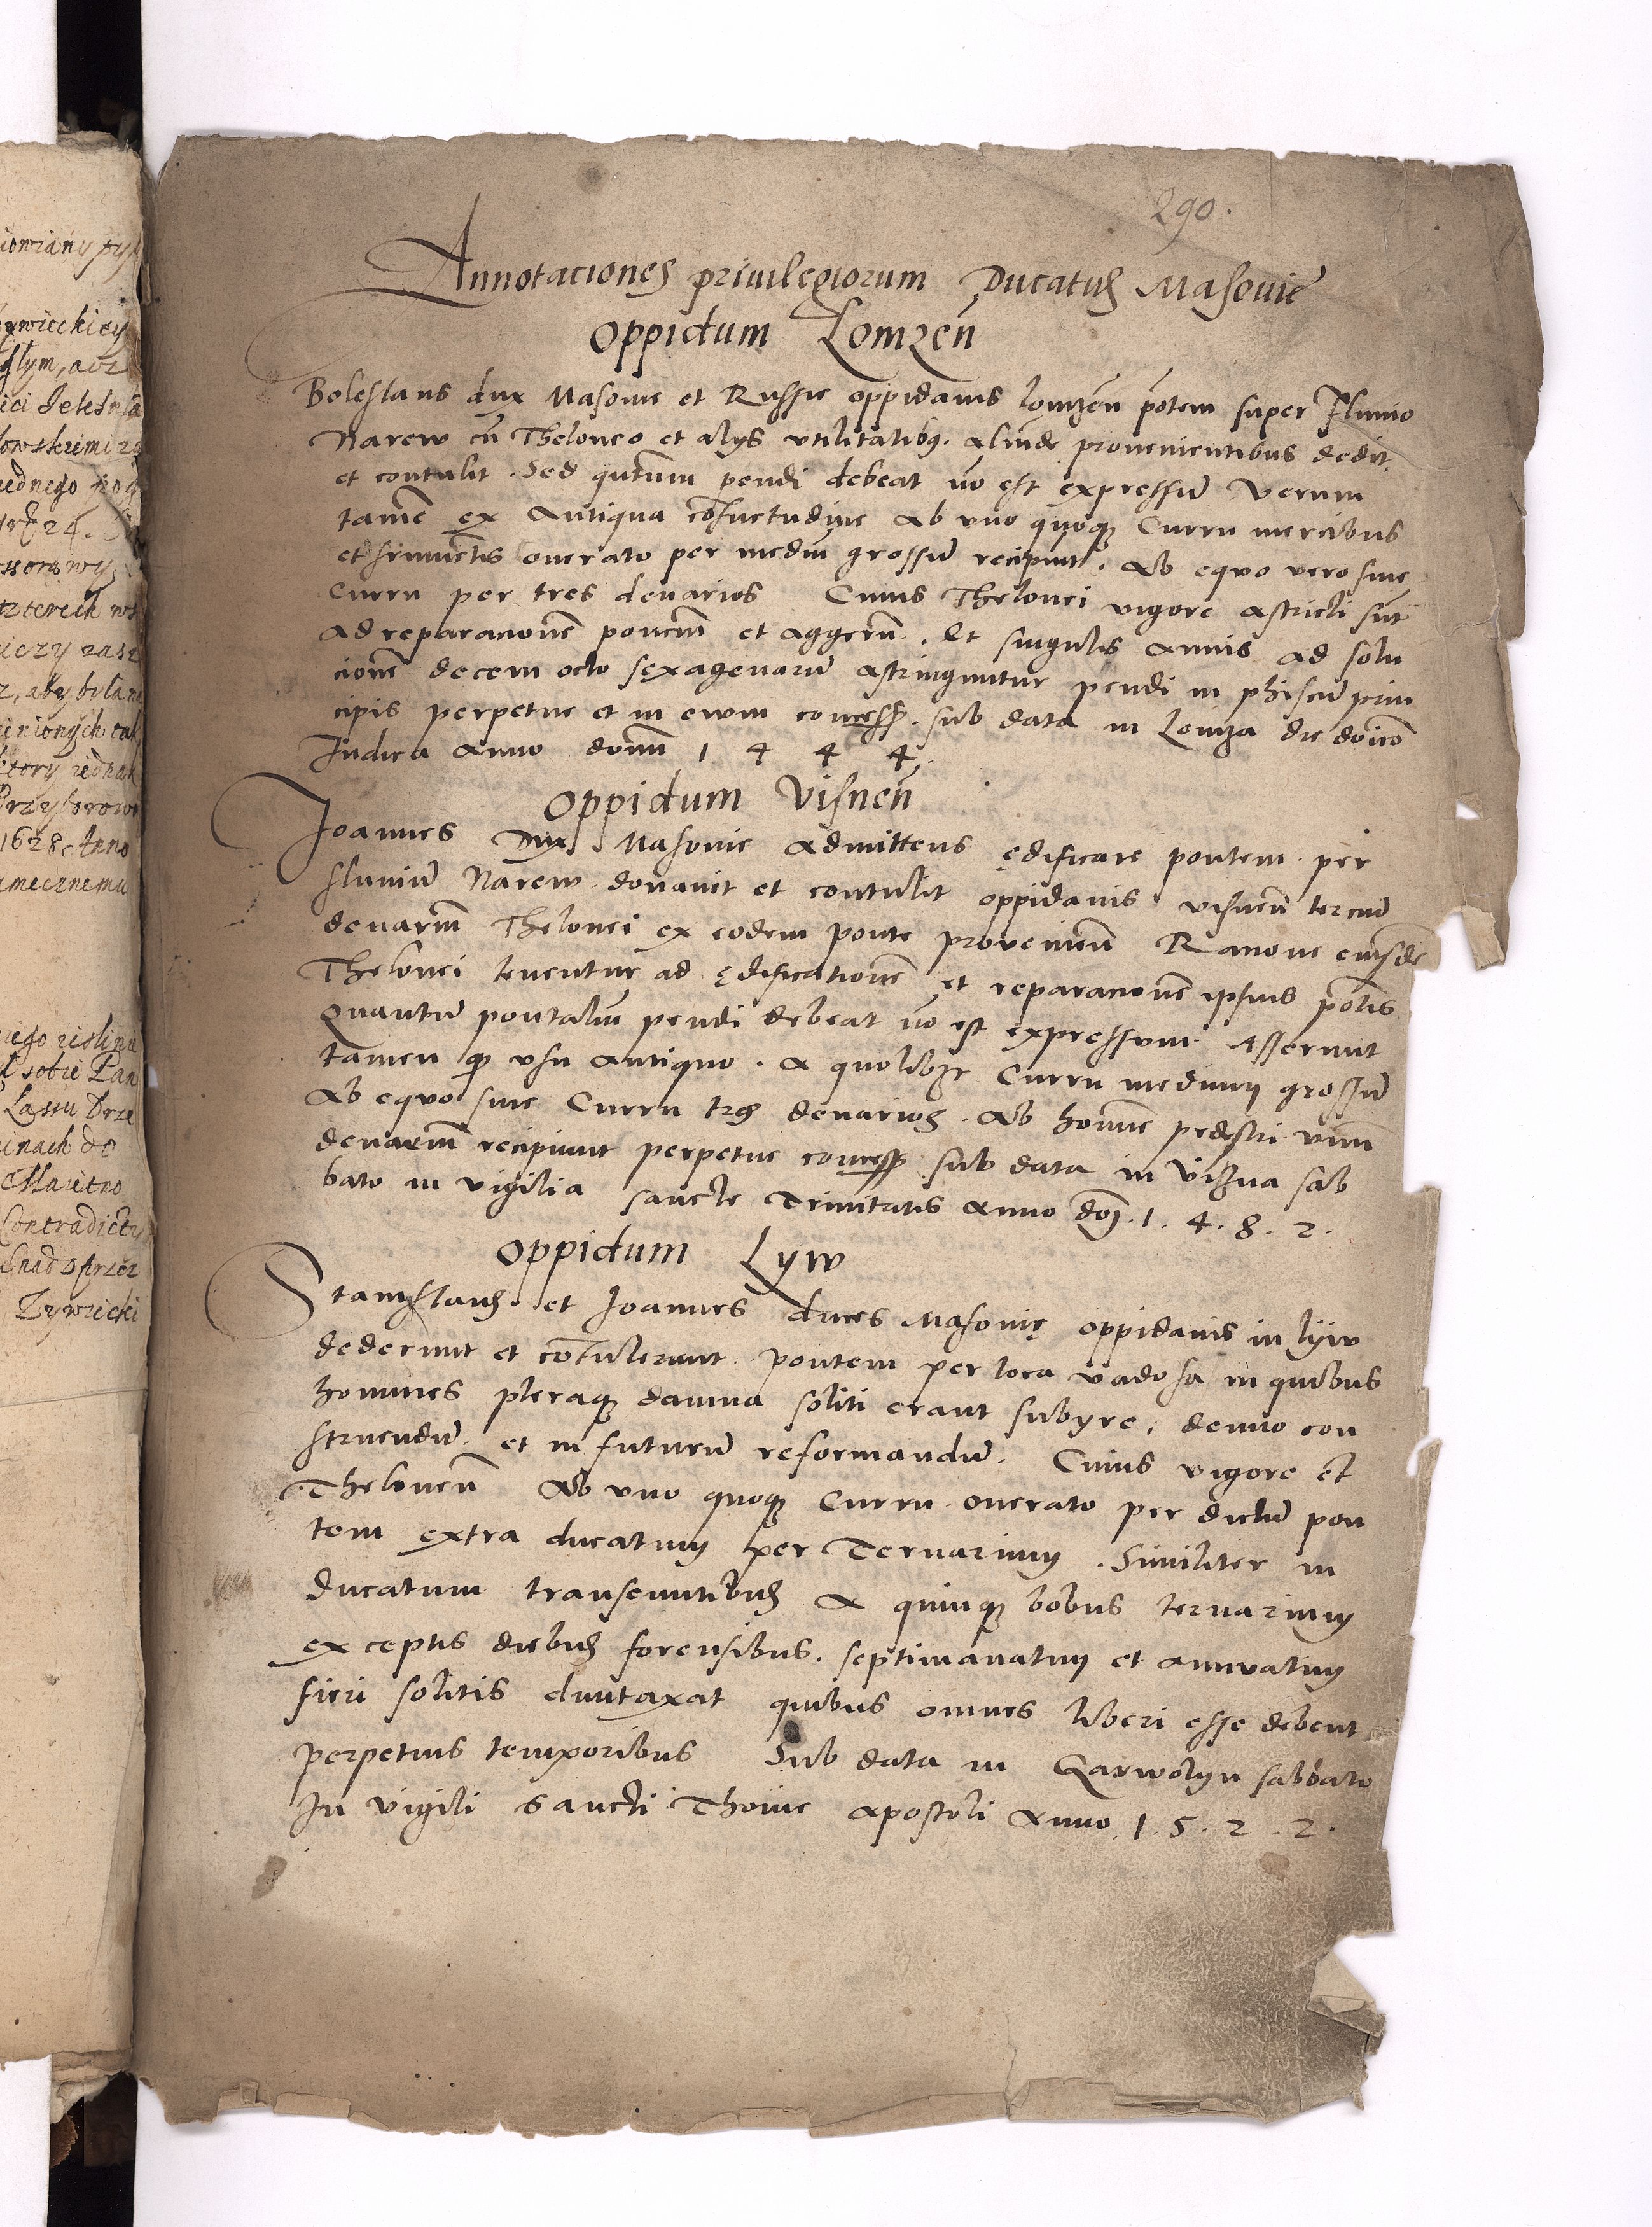 290.
Annotaciones priuilegiorum Ducatus Masouie
Oppidum Lomzen̄
Boleslaus dux Masouie et Russie oppidanis lomzen̄ põtem super Fluuio
Narew cū Theloneo et alys vtilitatibq. aliunde prouenientibus dedit
et contulit. Sed qutum pendi debeat nō est expressū Verum
tamē ex Antiqua cōsuetudine Ab vno quoqz Curru mercibus
et frumētis onerato per mediū grossū recipiunt. Ab equo vero sine
Curru per tres denarios Cuius Thelonei vigore astricti sūt
ad reparacionē ponciū et aggerū. Et singulis Annis ad solu
cionē decem octo sexagenarū astringuntur pendi in phiscū prin
cipis perpetue et in ewm concess. sub data in Lomza die doīco
Iudica Anno domī 1 4 4 4.
Oppidum Visnen̄
Joannes Dux Masouie Admittens ędificare pontem per
fluuiū Narew donauit et contulit oppidanis visnen̄ terciū
denariū Thelonei ex eodem ponte prouenien̄ Racione eiusdē
Thelonei tenentur ad ędificationē et reparacionē ipsius pōtis
Quantū pontaliū pendi debeat nō est expressum Asserunt
tamen qp vsu antiquo. A quolibet Curru medium grossū
Ab equo sine Curru tres denarios. Ab homine pedestri vnū
denariū recipiunt perpetue concess sub data in Vizna sab
bato in vigilia sancte Trinitatis Anno doī. 1. 4. 8. 2.
Oppidum Lyw
Stanislaus et Joannes duces Masouię oppidanis in lyiw
dederunt et cōtulerunt pontem per loca vadosa in quibus
homines pleraqz damna soliti erant subyre, denuo con
struendū et in futurū reformandū. Cuius vigore est
Theloneū Ab vno quoqz Curru onerato per dictū pon
tem extra ducatum per Ternarium. Similiter in
ducatum transeuntibus A quinqz bobus ternarium
exceptis diebus forensibus. septimanatim et annuatim
fieri solitis duntaxat quibus omnes liberi esse debent
perpetuis temporibus Sub data in Garwolyn sabbato
In vigili Sancti Thome apostoli Anno. 1. 5. 2. 2.
1628 Anno
Contradictu
Zywiecki